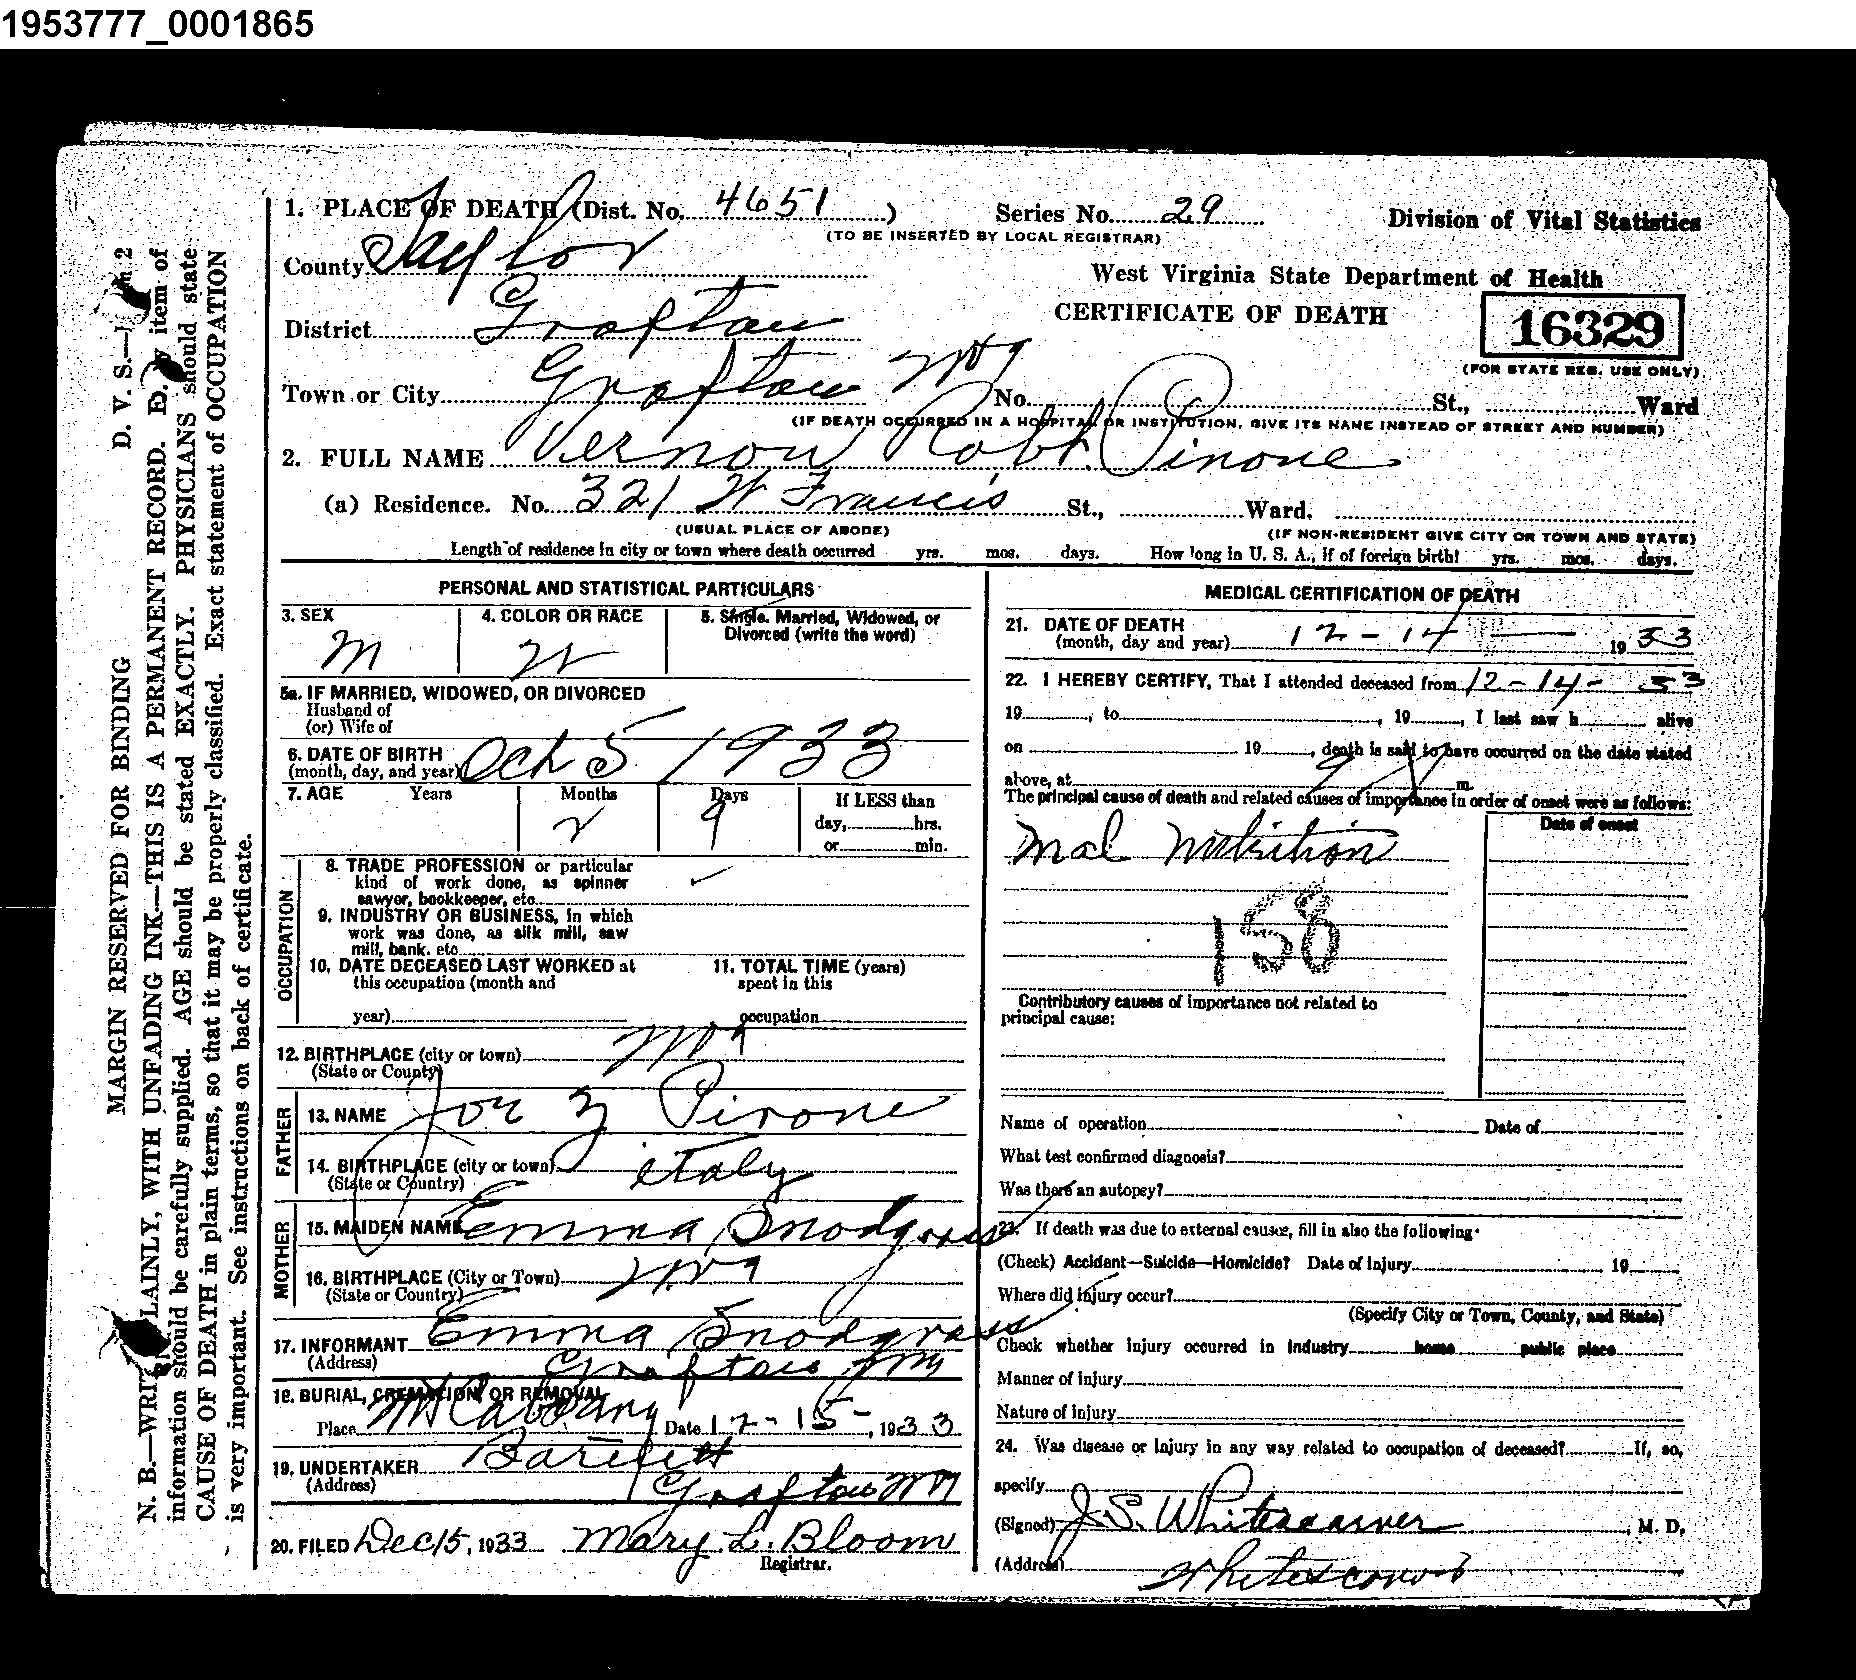 1953777_0001865
1. PLACE OF DEATH (Dist. No. 4651 ) Series No. 29 Division of Vital Statistics
(TO BE INSERTED BY LOCAL REGISTRAR)
County Taylor
West Virginia State Department of Health
District Grafton CERTIFICATE OF DEATH 16329
(FOR STATE REG. USE ONLY)
Town or City Grafton No. St., Ward
(IF DEATH OCCURRED IN A HOSPITAL OR INSTITUTION, GIVE ITS NAME INSTEAD OF STREET AND NUMBER)
2. FULL NAME Vernon Robt. Pirone
(a) Residence. No. 321 W Francis St., Ward.
(USUAL PLACE OF ABODE) (IF NON-RESIDENT GIVE CITY OR TOWN AND STATE)
Length of residence in city or town where death occurred yrs. mos. days. How long in U. S. A., if of foreign birth? yrs. mos. days.
MARGIN RESERVED FOR BINDING D. V. S.
N. B.—WRITE PLAINLY, WITH UNFADING INK—THIS IS A PERMANENT RECORD. Every item of
information should be carefully supplied. AGE should be stated EXACTLY. PHYSICIANS should state
CAUSE OF DEATH in plain terms, so that it may be properly classified. Exact statement of OCCUPATION
is very important. See instructions on back of certificate.
PERSONAL AND STATISTICAL PARTICULARS
3. SEX 4. COLOR OR RACE 5. Single. Married, Widowed, or
Divorced (write the word)
M W
5a. IF MARRIED, WIDOWED, OR DIVORCED
Husband of
(or) Wife of
6. DATE OF BIRTH
(month, day, and year) Oct 5 1933
7. AGE Years Months Days If LESS than
2 9 day, hrs.
or min.
OCCUPATION
8. TRADE PROFESSION or particular
kind of work done, as spinner
sawyer, bookkeeper, etc.
9. INDUSTRY OR BUSINESS, in which
work was done, as silk mill, saw
mill, bank. etc
10. DATE DECEASED LAST WORKED at 11. TOTAL TIME (years)
this occupation (month and spent in this
year) occupation
12. BIRTHPLACE (city or town) W Va
(State or County)
FATHER
13. NAME Joe Z Pirone
14. BIRTHPLACE (city or town) Italy
(State or Country)
MOTHER
15. MAIDEN NAME Emma Snodgrass
16. BIRTHPLACE (City or Town) W Va
(State or Country)
17. INFORMANT Emma Snodgrass
(Address) Grafton W Va
18. BURIAL, CREMATION, OR REMOVAL
Place Date 12-15-, 1933
19. UNDERTAKER Bartlett
(Address) Grafton W Va
20. FILED Dec 15, 1933 Mary L. Bloom
Registrar.
MEDICAL CERTIFICATION OF DEATH
21. DATE OF DEATH
(month, day and year) 12-14 1933
22. I HEREBY CERTIFY, That I attended deceased from 12-14- 33
19 , to , 19 , I last saw h alive
on 19 , death is said to have occurred on the date stated
above, at m.
The principal cause of death and related causes of importance in order of onset were as follows:
Date of onset
Mal Nutrition
158
Contributory causes of importance not related to
principal cause:
Name of operation Date of
What test confirmed diagnosis?
Was there an autopsy?
23. If death was due to external causes, fill in also the following:
(Check) Accident—Suicide—Homicide? Date of Injury 19
Where did injury occur?
(Specify City or Town, County, and State)
Check whether injury occurred in industry home public place
Manner of injury
Nature of injury
24. Was disease or injury in any way related to occupation of deceased? If, so,
specify
(Signed) J. S. Whitescarver , M. D.
(Address)